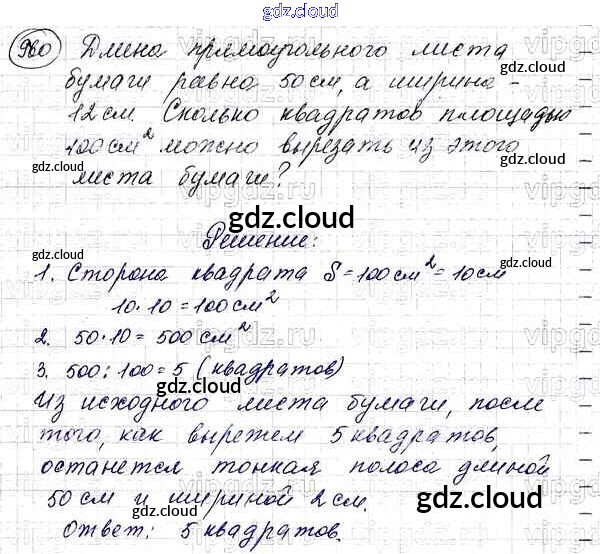 gdz.cloud
980 Длина прямоугольного листа
бумаги равна 50 см, а ширина -
12 см. Сколько квадратов площадью
100 см² можно вырезать из этого
листа бумаги?
Решение:
1. Сторона квадрата S = 100 см² = 10 см
10 · 10 = 100 см²
2. 50 · 10 = 500 см²
3. 500 : 100 = 5 (квадратов)
Из исходного листа бумаги, после
того, как вырежем 5 квадратов,
останется тонкая полоса длиной
50 см и шириной 2 см.
Ответ: 5 квадратов.
gdz.cloud
gdz.cloud
gdz.cloud
gdz.cloud
gdz.cloud
gdz.cloud
gdz.cloud
gdz.cloud
gdz.cloud
gdz.cloud
gdz.cloud
gdz.cloud